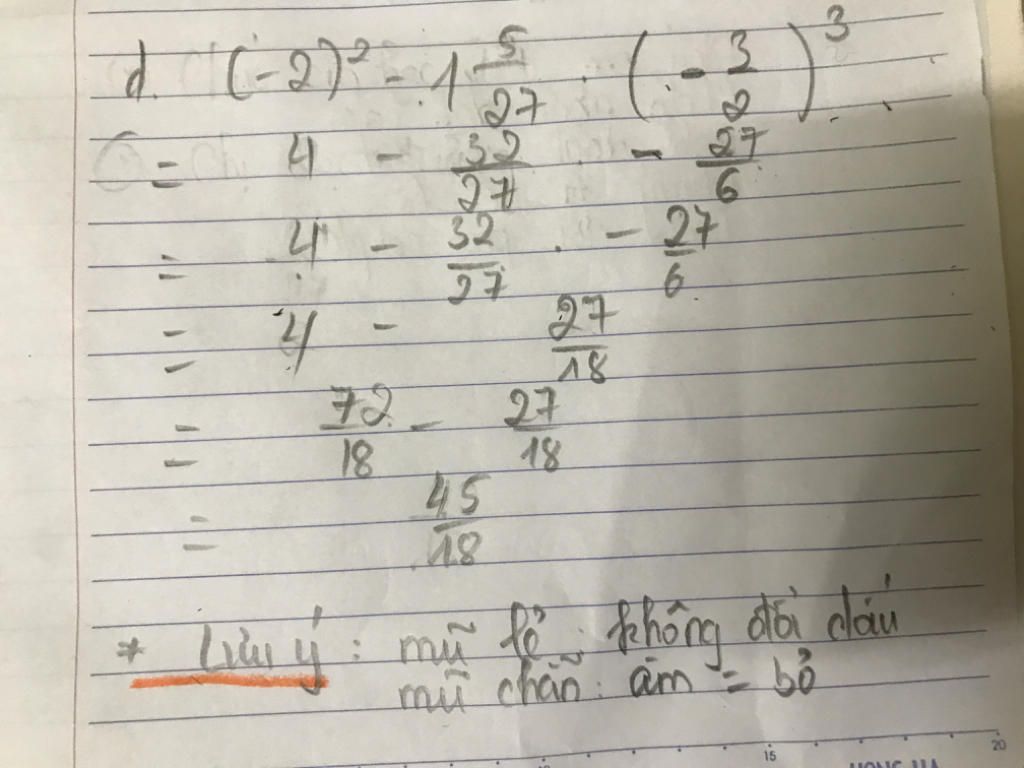 d. (-2)² - 1 5/27 . (-3/2)³
= 4 - 32/27 . - 27/6
= 4 - 32/27 . - 27/6
= 4 - 27/18
= 72/18 - 27/18
= 45/18
* Lưu ý: mũ lẻ: không đổi dấu
mũ chẵn: âm = bỏ
15 20